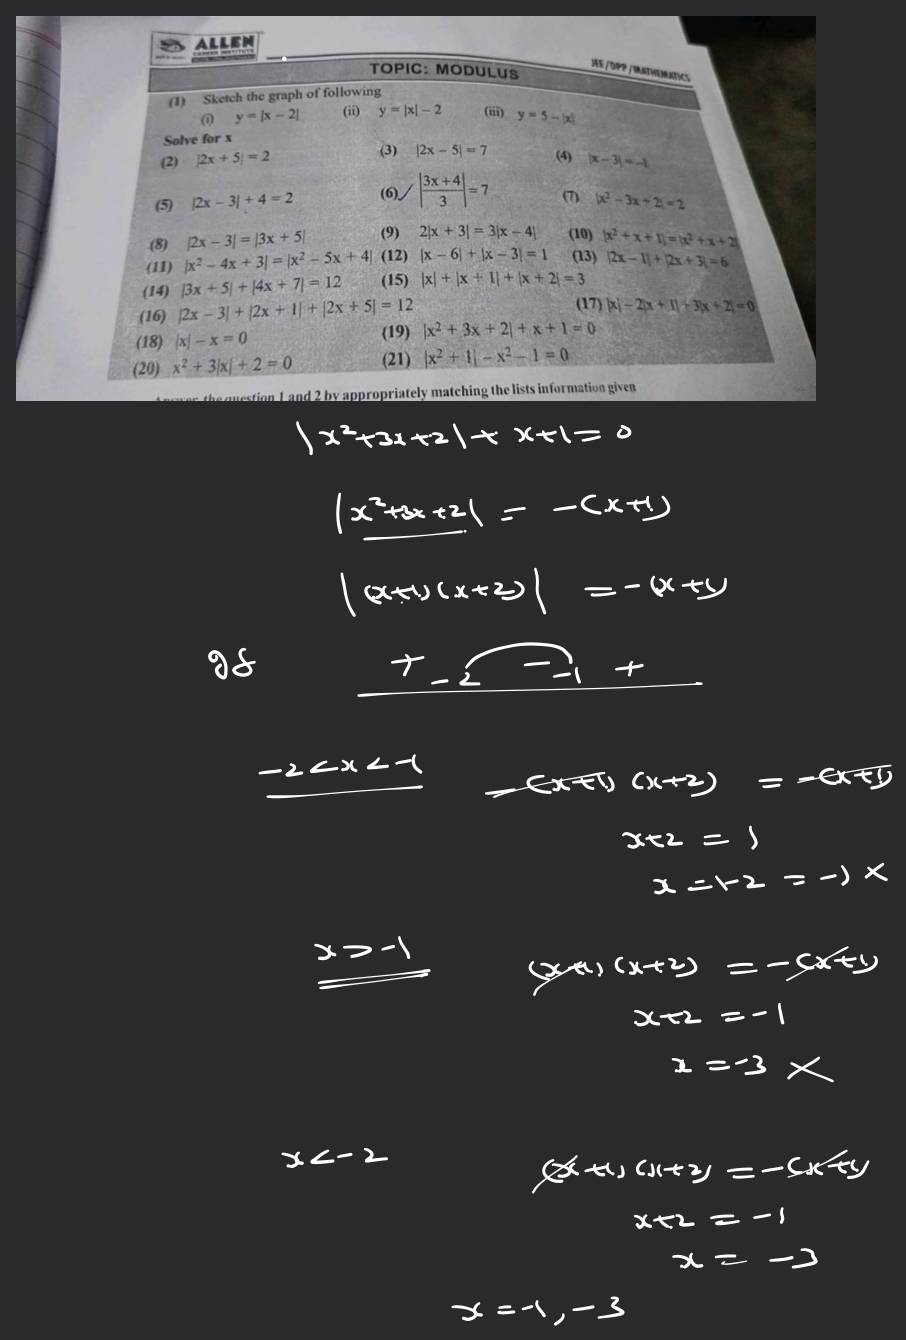 ALLEN
CAREER INSTITUTE
JEE/DPP/MATHEMATICS
TOPIC: MODULUS
(1) Sketch the graph of following
(i) y = |x − 2| (ii) y = |x| − 2 (iii) y = 5 − |x|
Solve for x
(2) |2x + 5| = 2 (3) |2x − 5| = 7 (4) |x − 3| = −1
(5) |2x − 3| + 4 = 2 (6) |(3x + 4)/3| = 7 (7) |x² − 3x + 2| = 2
(8) |2x − 3| = |3x + 5| (9) 2|x + 3| = 3|x − 4| (10) |x² + x + 1| = |x² + x + 2|
(11) |x² − 4x + 3| = |x² − 5x + 4| (12) |x − 6| + |x − 3| = 1 (13) |2x − 1| + |2x + 3| = 6
(14) |3x + 5| + |4x + 7| = 12 (15) |x| + |x + 1| + |x + 2| = 3
(16) |2x − 3| + |2x + 1| + |2x + 5| = 12 (17) |x| − 2|x + 1| + 3|x + 2| = 0
(18) |x| − x = 0 (19) |x² + 3x + 2| + x + 1 = 0
(20) x² + 3|x| + 2 = 0 (21) |x² + 1| − x² − 1 = 0
Answer the question 1 and 2 by appropriately matching the lists information given
|x²+3x+2|+ x+1 = 0
|x²+3x+2| = −(x+1)
|(x+1)(x+2)| = −(x+1)
If + −2 − −1 +
−2<x<−1 −(x+1)(x+2) = −(x+1)
x+2 = 1
x = 1−2 = −1 ×
x>−1 (x+1)(x+2) = −(x+1)
x+2 = −1
x = −3 ×
x<−2 (x+1)(x+2) = −(x+1)
x+2 = −1
x = −3
x = −1, −3